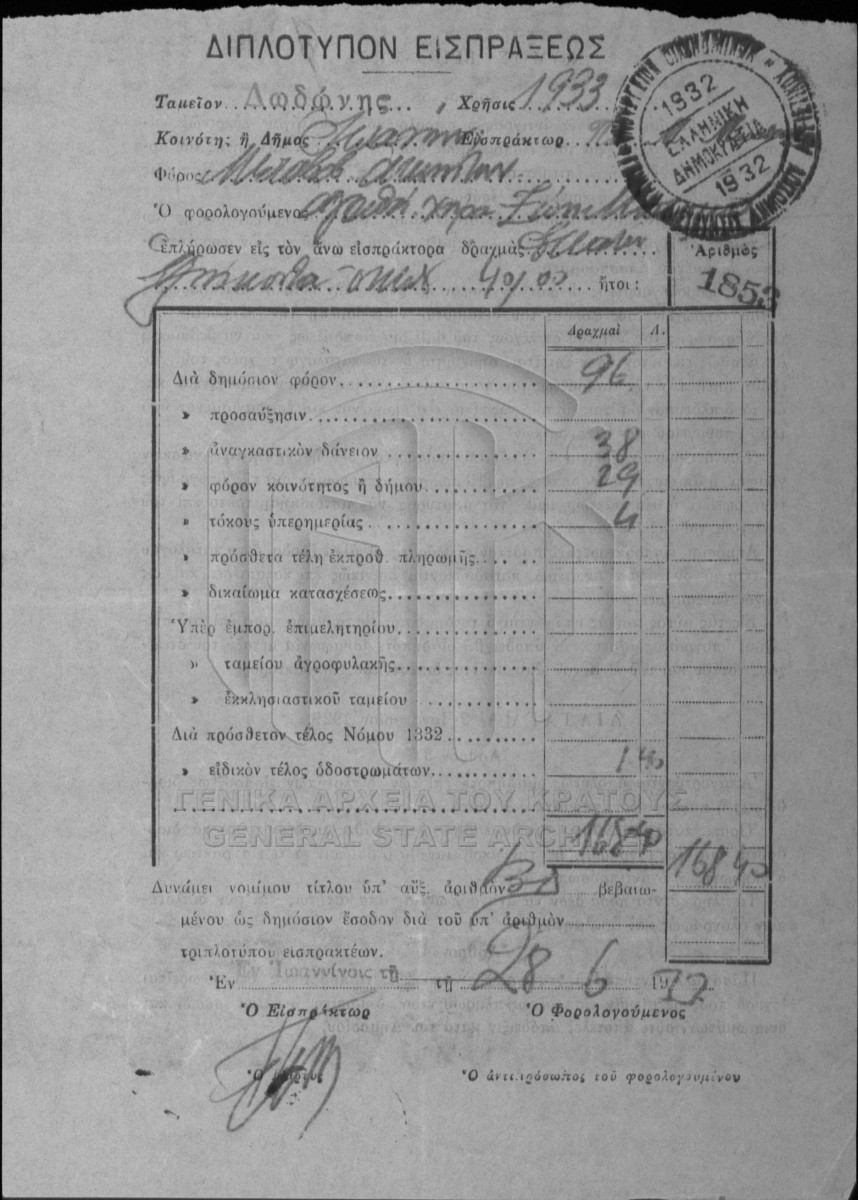 ΔΙΠΛΟΤΥΠΟΝ ΕΙΣΠΡΑΞΕΩΣ
Ταμεῖον Δωδώνης, Χρῆσις 1933
Κοινότης ἢ Δῆμος Εἰσπράκτωρ
Φόρος
Ὁ φορολογούμενος χήρα
ἐπλήρωσεν εἰς τὸν ἄνω εἰσπράκτορα δραχμὰς Ἑκατὸν
ἑξήκοντα ὀκτὼ 40/00 ἤτοι :
Ἀριθμὸς
1853
1932
ΕΛΛΗΝΙΚΗ
ΔΗΜΟΚΡΑΤΙΑ
1932
Δραχμαὶ Λ.
Διὰ δημόσιον φόρον 96
» προσαύξησιν
» ἀναγκαστικὸν δάνειον 38
» φόρον κοινότητος ἢ δήμου 29
» τόκους ὑπερημερίας 4
» πρόσθετα τέλη ἐκπροθ. πληρωμῆς
» δικαίωμα κατασχέσεως
Ὑπὲρ ἐμπορ. ἐπιμελητηρίου
» ταμείου ἀγροφυλακῆς
» ἐκκλησιαστικοῦ ταμείου
Διὰ πρόσθετον τέλος Νόμου 1332
» εἰδικὸν τέλος ὁδοστρωμάτων 1 40
ΓΕΝΙΚΑ ΑΡΧΕΙΑ ΤΟΥ ΚΡΑΤΟΥΣ
GENERAL STATE ARCHIVES
168 40 168 40
Δυνάμει νομίμου τίτλου ὑπ' αὔξ. ἀριθμὸν βεβαιω-
μένου ὡς δημόσιον ἔσοδον διὰ τοῦ ὑπ' ἀριθμὸν
τριπλοτύπου εἰσπρακτέων.
Ἐν Ἰωαννίνοις τῇ
Ἐν τῇ 28 6 19
Ὁ Εἰσπράκτωρ Ὁ Φορολογούμενος
Ὁ μάρτυς Ὁ ἀντιπρόσωπος τοῦ φορολογουμένου